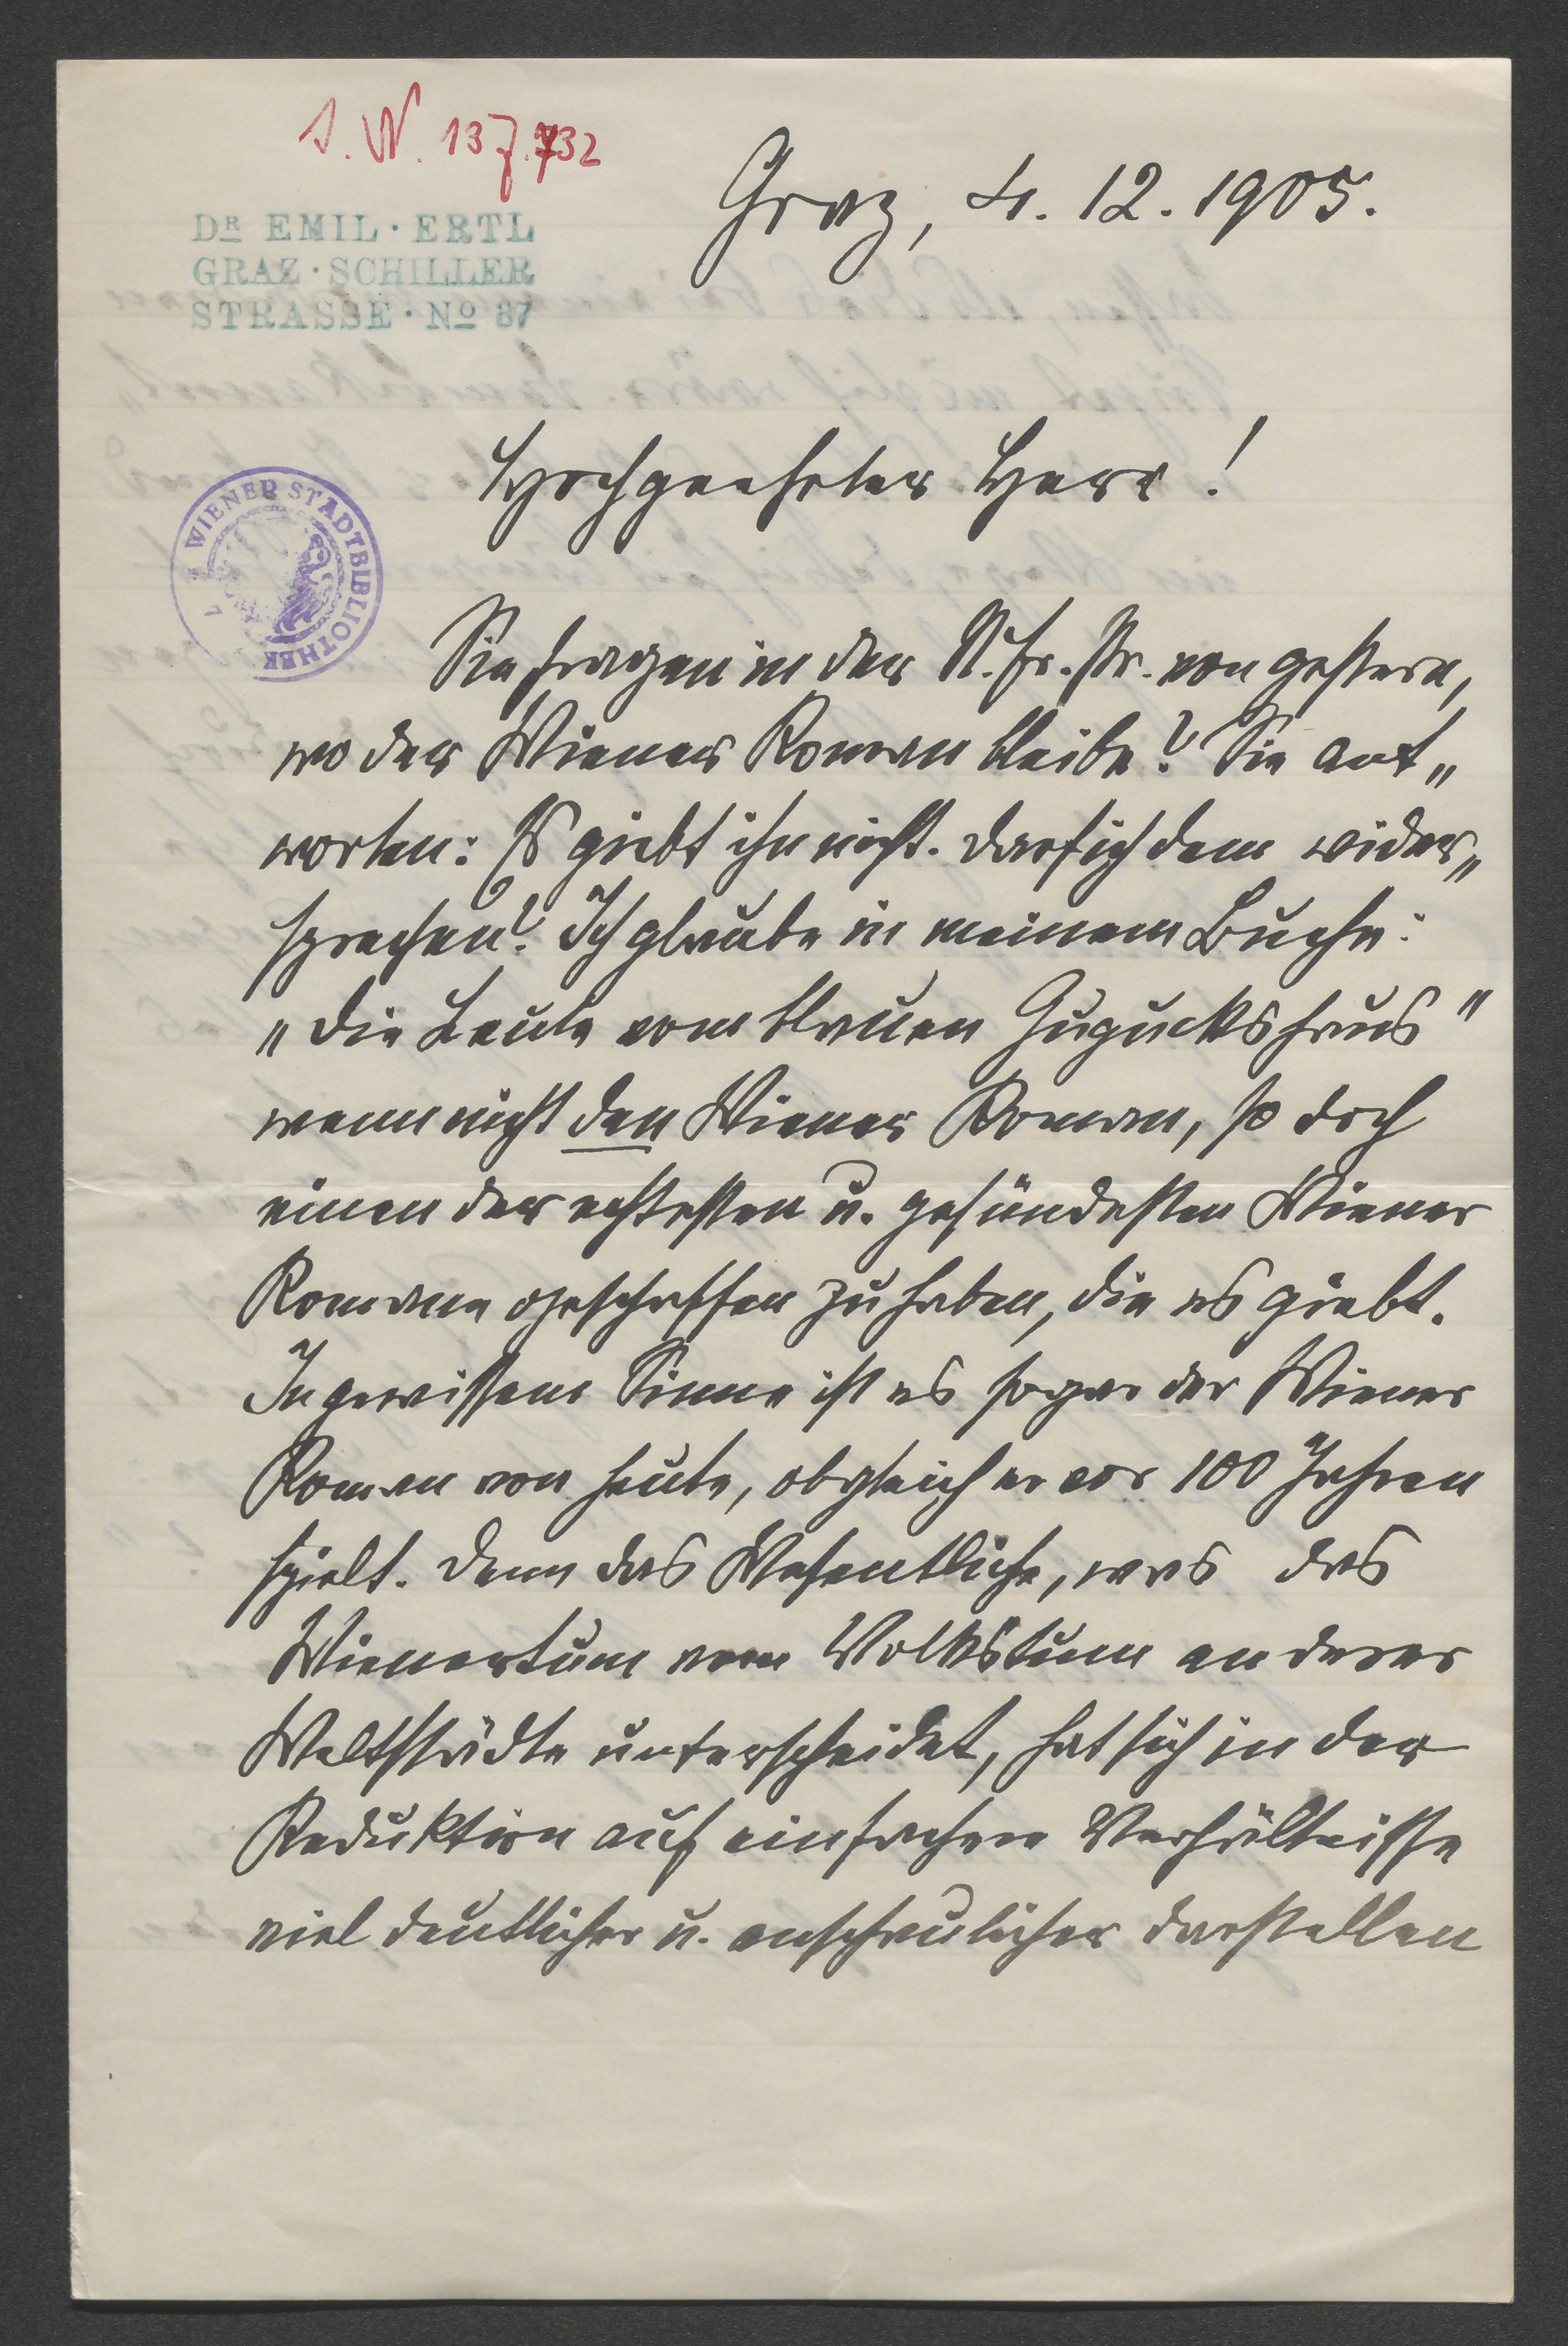 I. N. 137.732
Graz, 4. 12. 1905.
DR EMIL · ERTL
GRAZ · SCHILLER
STRASSE · No 37
Hochgeehrter Herr!
WIENER STADTBIBLIOTHEK
Sie fragen in der N. Fr. Pr. von gestern,
wo der Wiener Roman bleibe? Sie ant„
worten: Es giebt ihn nicht. Darf ich dem wider„
sprechen? Ich glaube in meinem Buche:
„Die Leute vom blauen Guguckshaus“
wenn nicht den Wiener Roman, so doch
einen der echtesten u. gesündesten Wiener
Romane geschaffen zu haben, die es giebt.
In gewissem Sinne ist es sogar der Wiener
Roman von heute, obgleich er vor 100 Jahren
spielt. Denn das Wesentliche, was das
Wienertum vom Volkstum anderer
Weltstädte unterscheidet, hat sich in der
Reduktion auf einfachere Verhältnisse
viel deutlicher u. anschaulicher darstellen